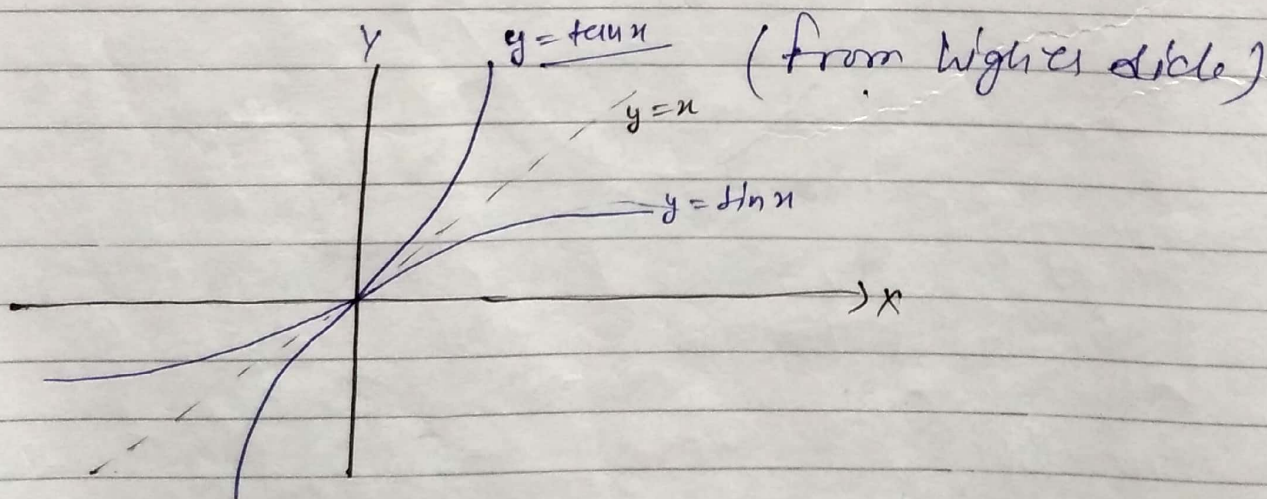 Y
y = tanx (from higher side)
y = x
y = sinx
X